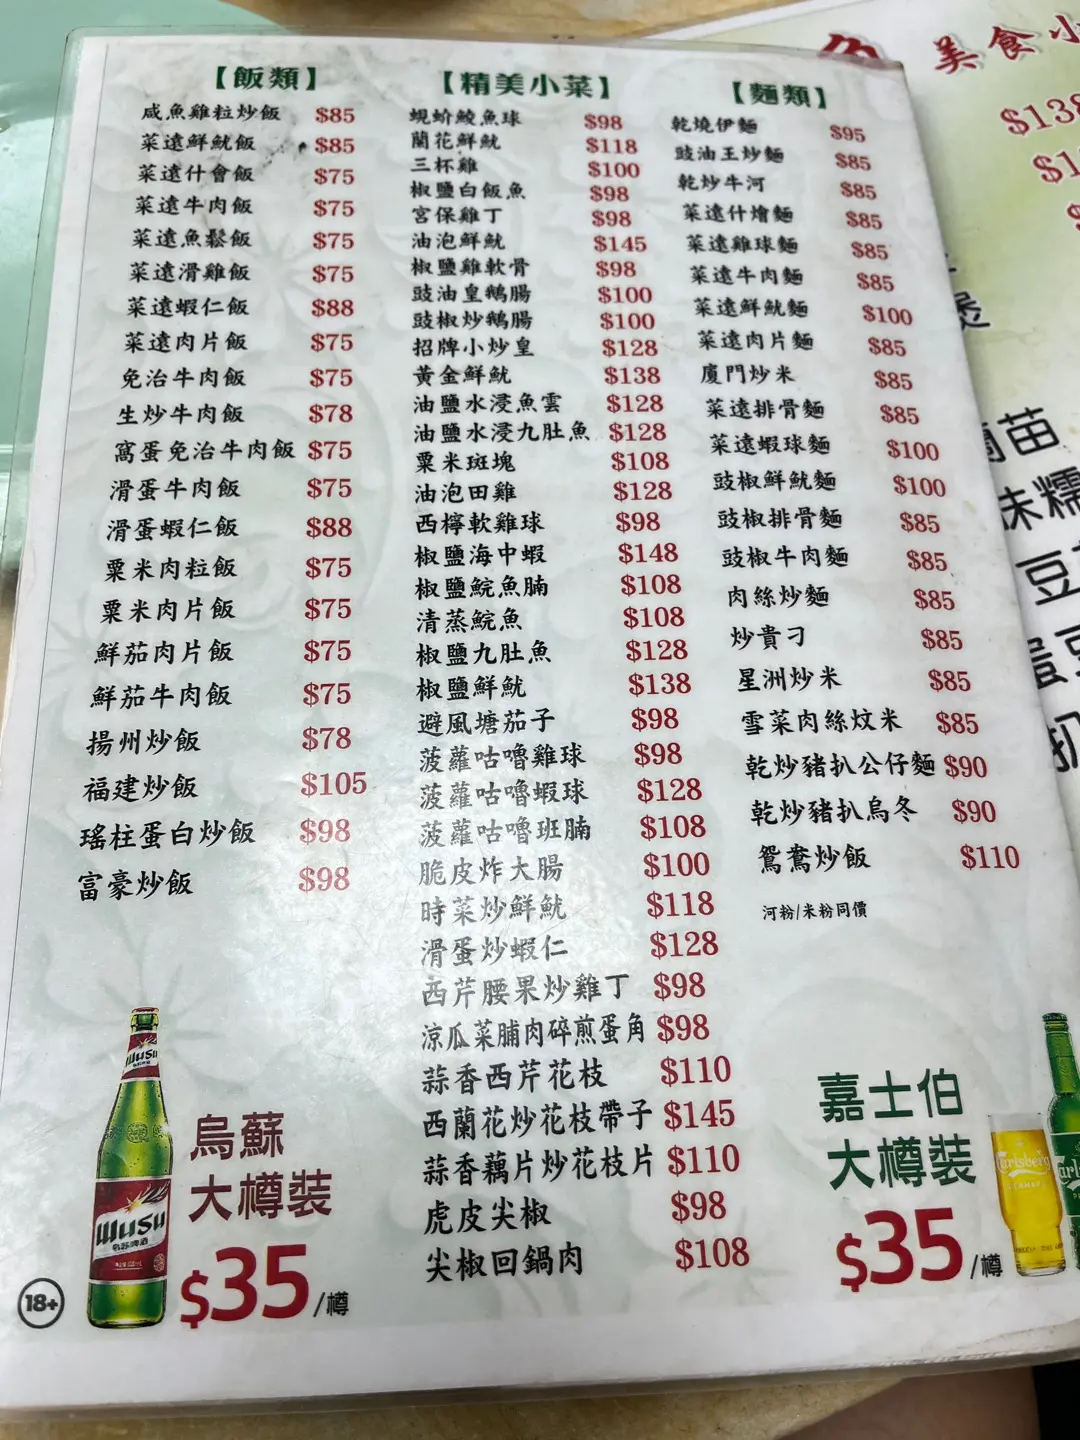 【飯類】
咸魚雞粒炒飯 $85
菜遠鮮魷飯 $85
菜遠什會飯 $75
菜遠牛肉飯 $75
菜遠魚鬆飯 $75
菜遠滑雞飯 $75
菜遠蝦仁飯 $88
菜遠肉片飯 $75
免治牛肉飯 $75
生炒牛肉飯 $78
窩蛋免治牛肉飯 $75
滑蛋牛肉飯 $75
滑蛋蝦仁飯 $88
粟米肉粒飯 $75
粟米肉片飯 $75
鮮茄肉片飯 $75
鮮茄牛肉飯 $75
揚州炒飯 $78
福建炒飯 $105
瑤柱蛋白炒飯 $98
富豪炒飯 $98
【精美小菜】
蜆蚧鯪魚球 $98
蘭花鮮魷 $118
三杯雞 $100
椒鹽白飯魚 $98
宮保雞丁 $98
油泡鮮魷 $145
椒鹽雞軟骨 $98
豉油皇鵝腸 $100
豉椒炒鵝腸 $100
招牌小炒皇 $128
黃金鮮魷 $138
油鹽水浸魚雲 $128
油鹽水浸九肚魚 $128
粟米斑塊 $108
油泡田雞 $128
西檸軟雞球 $98
椒鹽海中蝦 $148
椒鹽鯇魚腩 $108
清蒸鯇魚 $108
椒鹽九肚魚 $128
椒鹽鮮魷 $138
避風塘茄子 $98
菠蘿咕嚕雞球 $98
菠蘿咕嚕蝦球 $128
菠蘿咕嚕班腩 $108
脆皮炸大腸 $100
時菜炒鮮魷 $118
滑蛋炒蝦仁 $128
西芹腰果炒雞丁 $98
涼瓜菜脯肉碎煎蛋角 $98
蒜香西芹花枝 $110
西蘭花炒花枝帶子 $145
蒜香藕片炒花枝片 $110
虎皮尖椒 $98
尖椒回鍋肉 $108
【麵類】
乾燒伊麵 $95
豉油王炒麵 $85
乾炒牛河 $85
菜遠什燴麵 $85
菜遠雞球麵 $85
菜遠牛肉麵 $85
菜遠鮮魷麵 $100
菜遠肉片麵 $85
廈門炒米 $85
菜遠排骨麵 $85
菜遠蝦球麵 $100
豉椒鮮魷麵 $100
豉椒排骨麵 $85
豉椒牛肉麵 $85
肉絲炒麵 $85
炒貴刁 $85
星洲炒米 $85
雪菜肉絲炆米 $85
乾炒豬扒公仔麵 $90
乾炒豬扒烏冬 $90
鴛鴦炒飯 $110
河粉/米粉同價
WUSU
WUSU
烏蘇啤酒
烏蘇
大樽裝
$35/樽
18+
嘉士伯
大樽裝
$35/樽
Carlsberg
美食小
$138
苗
糯
豆